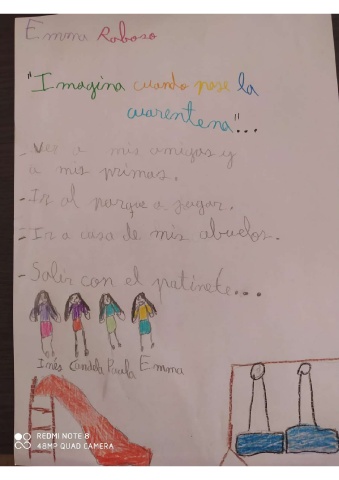 Emma Raboso
"Imagina cuando pase la
cuarentena"...
- Ver a mis amigas y
a mis primas.
- Ir al parque a jugar.
- Ir a casa de mis abuelos.
- Salir con el patinete...
Inés Candela Paula Emma
REDMI NOTE 8
48MP QUAD CAMERA